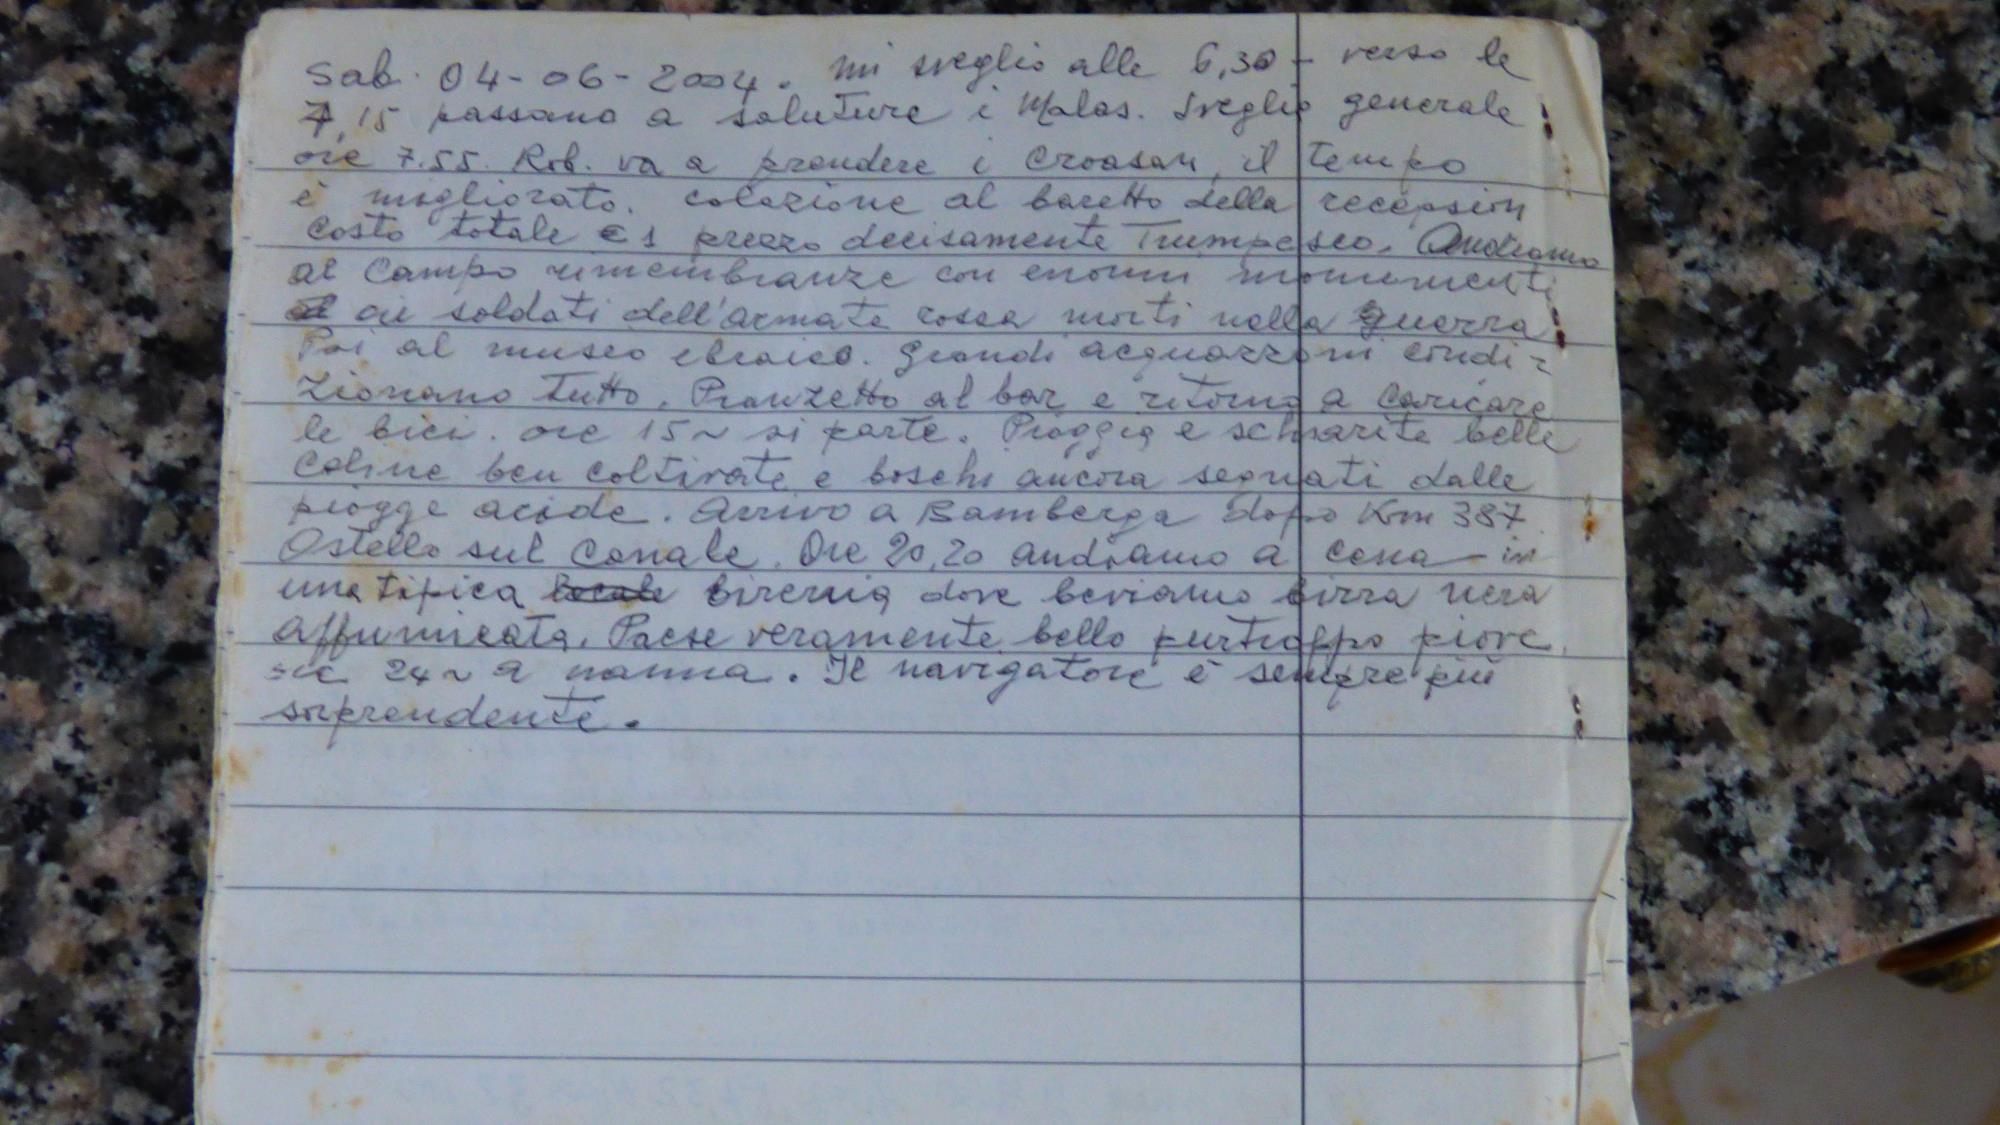 Sab. 04-06-2004. mi sveglio alle 6,30 - verso le
7,15 passano a salutare i Malas. Sveglia generale
ore 7.55. Rob. va a prendere i Croasan, il tempo
è migliorato. colazione al baretto della recepsion
Costo totale € 1 prezzo decisamente. Andiamo
al Campo rimembranze con enormi monumenti
ai soldati dell'armata rossa morti nella guerra
Poi al museo ebraico. Grandi acquazzoni condi-
zionano tutto. Pranzetto al bar e ritorno a caricare
le bici. ore 15~ si parte. Pioggia e schiarite belle
Coline ben coltivate e boschi ancora segnati dalle
piogge acide. Arrivo a Bamberga dopo Km 387
Ostello sul Canale. Ore 20,20 andiamo a cena - in
una tipica locale bireria dove beviamo birra nera
affumicata. Paese veramente bello purtroppo piove
24~ a nanna. Il navigatore è sempre più
sorprendente.